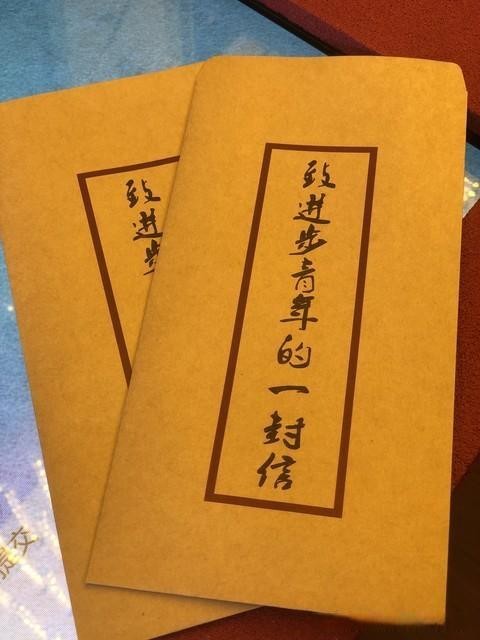 致进步青年的一封信
致进步
提交